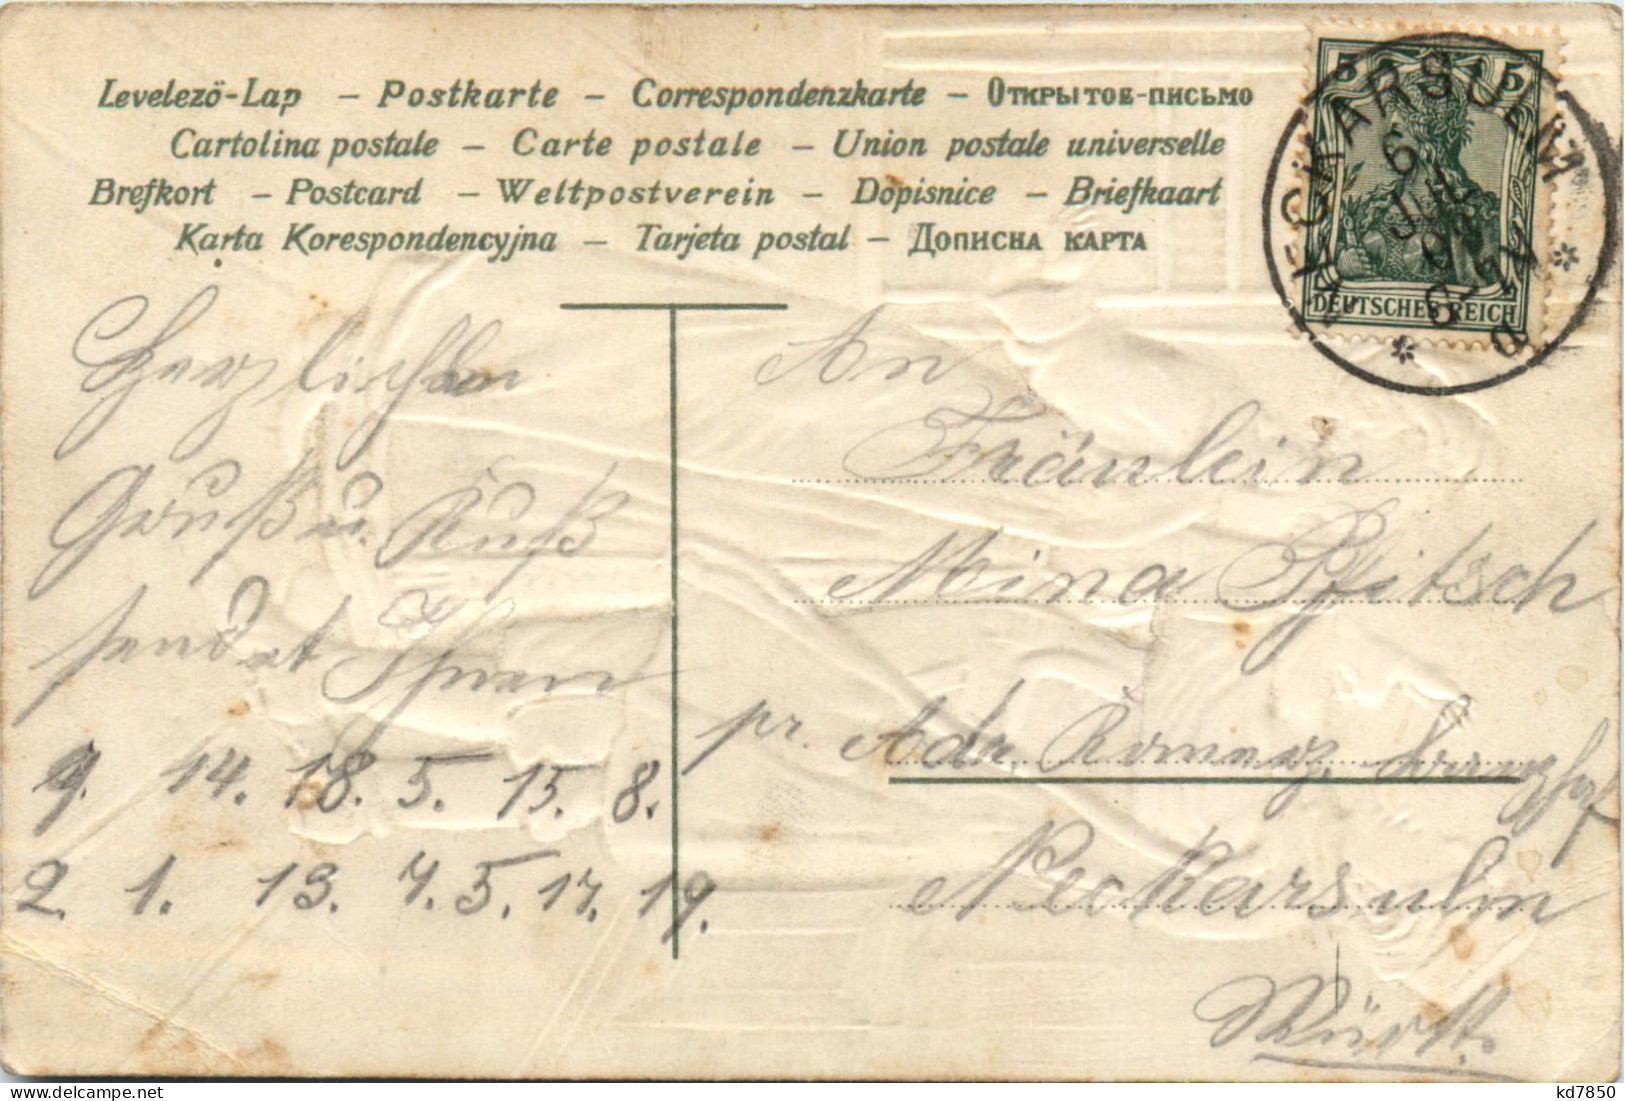 Levelezö-Lap – Postkarte – Correspondenzkarte – Открытов-письмо
Cartolina postale – Carte postale – Union postale universelle
Brefkort – Postcard – Weltpostverein – Dopisnice – Briefkaart
Karta Korespondencyjna – Tarjeta postal – Дописна карта
5 5
DEUTSCHES REICH
NECKARSULM
6 JUL
Herzlichen
Gruß u. Kuß
sendet Ihnen
9. 14. 18. 5. 15. 8.
2. 1. 13. 4. 5. 17. 19.
An
Fräulein
Mina Pfitsch
pr. Adr.
Neckarsulm
Württ.
kd7850